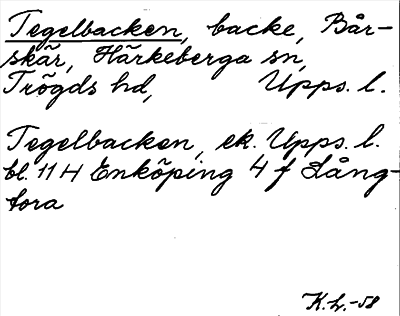 Tegelbacken, backe, Bår-
skär, Härkeberga sn,
Trögds hd, Upps. l.
Tegelbacken, ek. Upps. l.
bl. 11 H Enköping 4 f Lång-
tora
K.L.-58